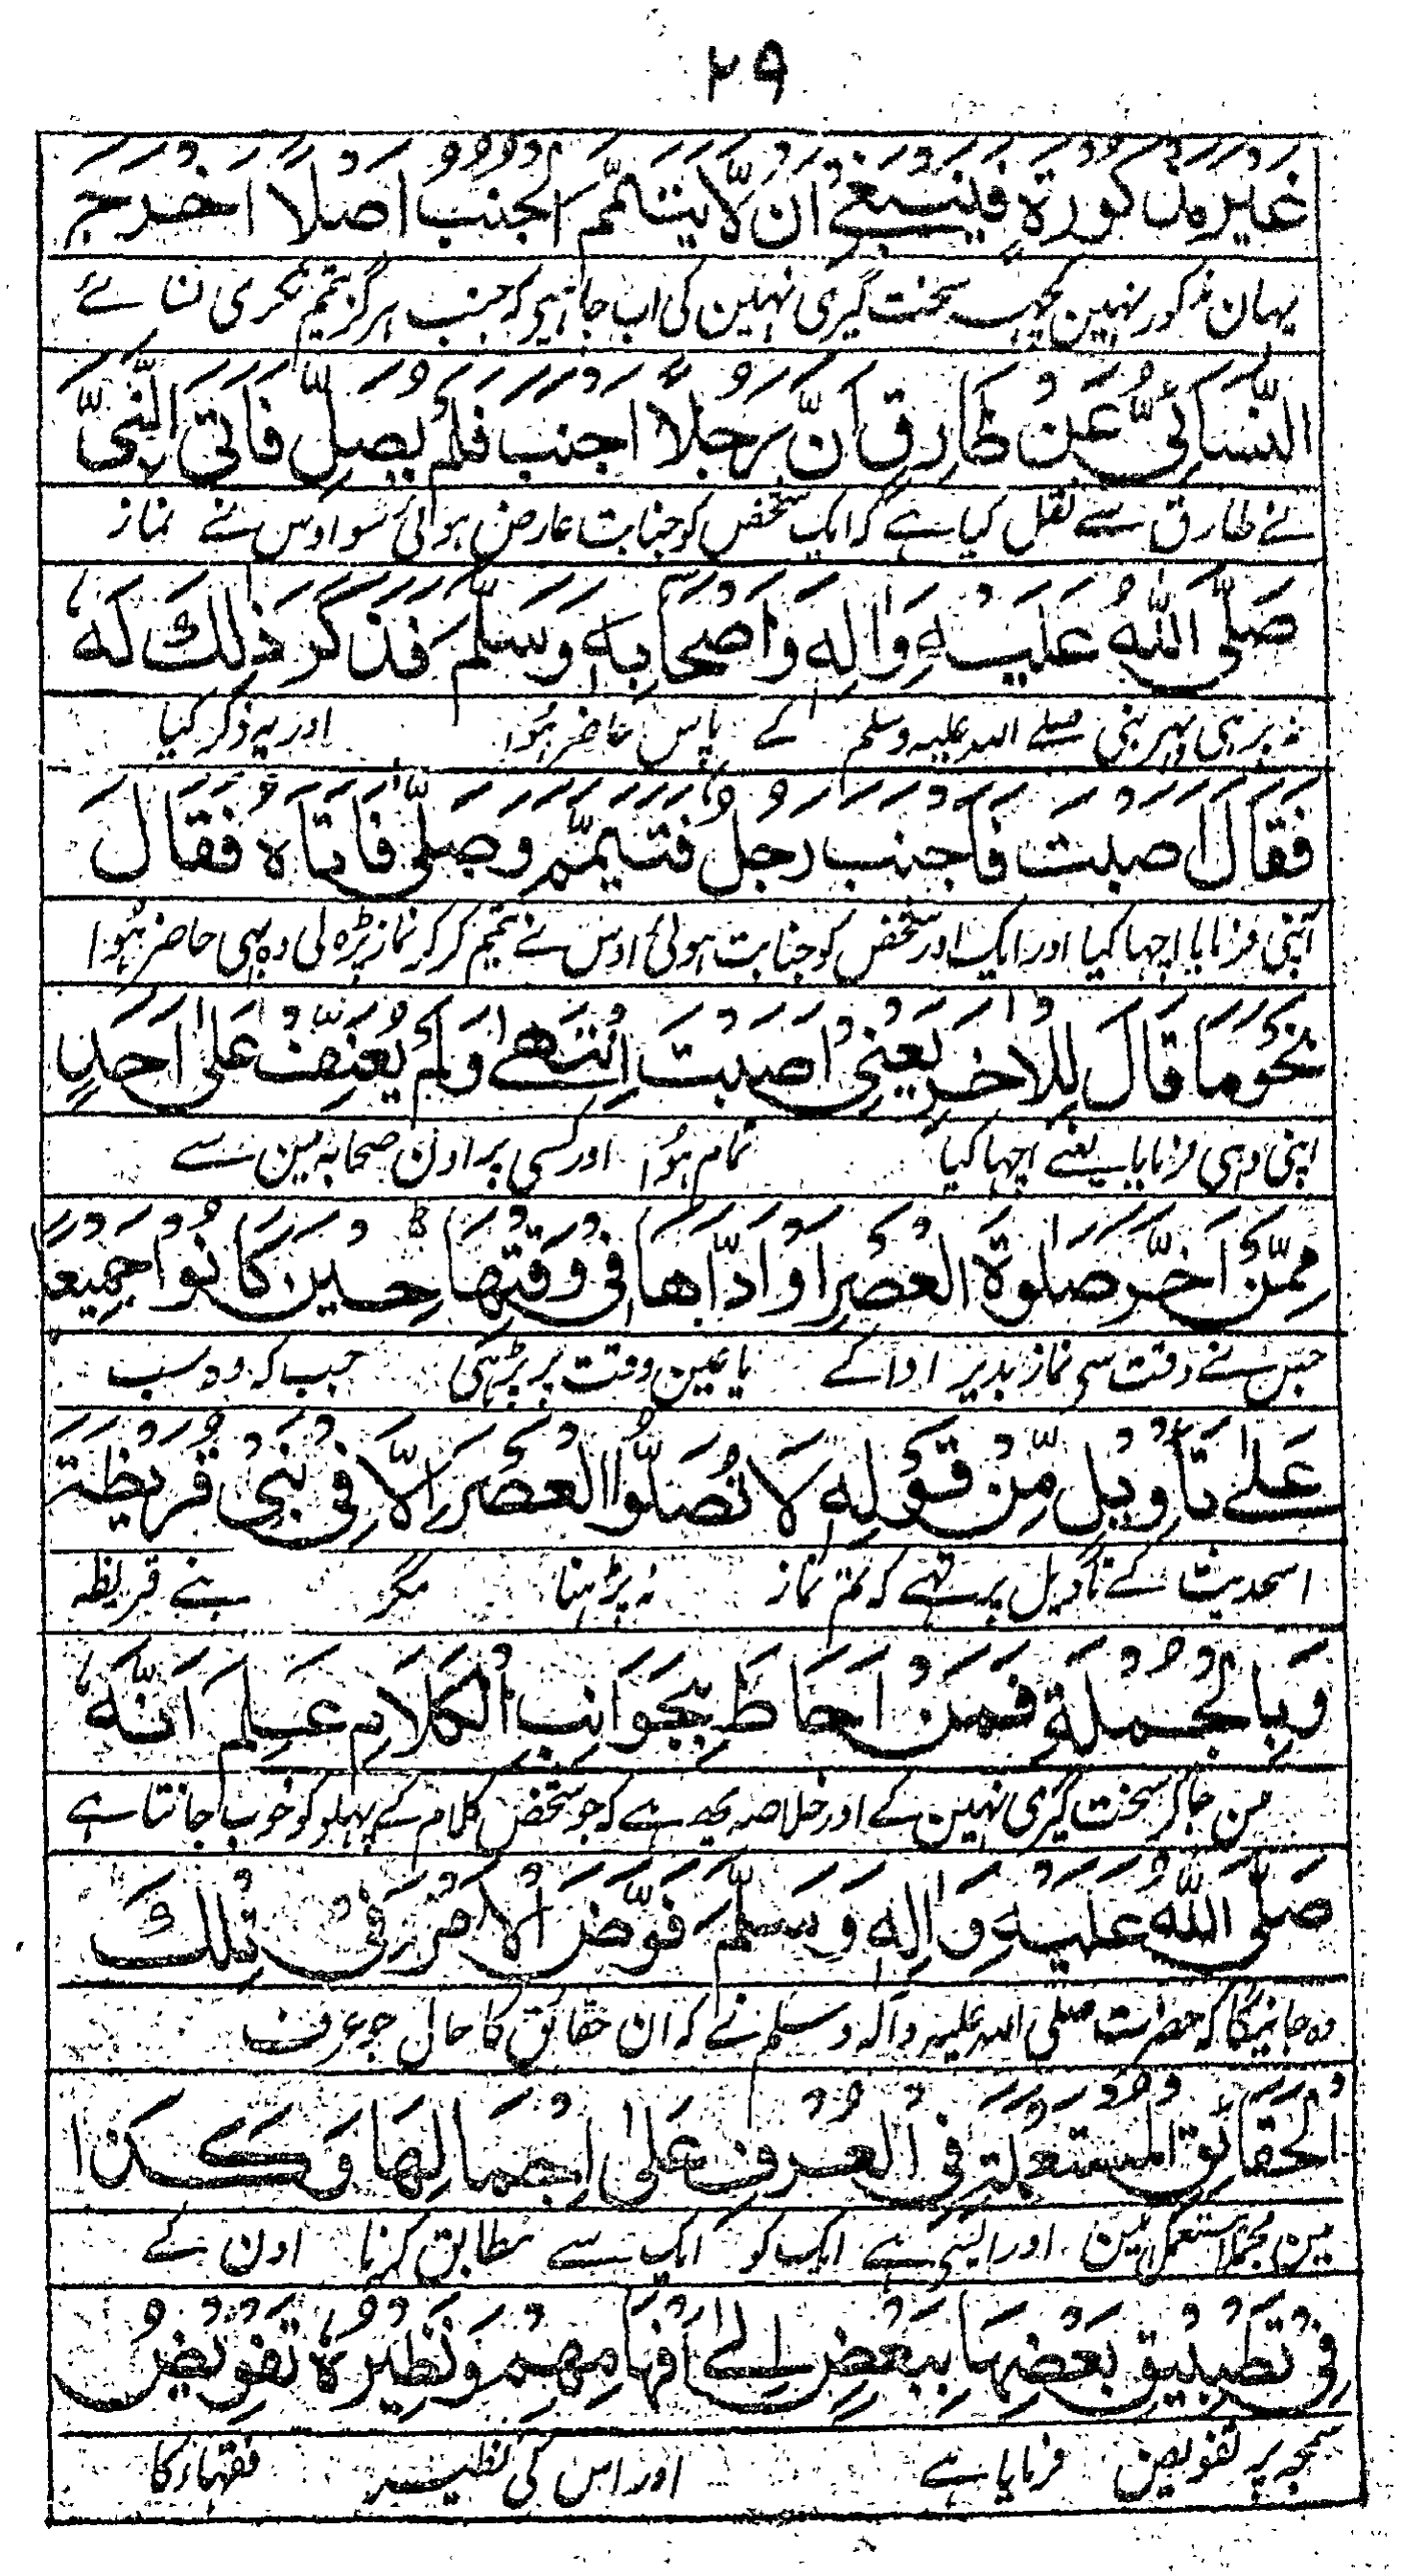 ٢٩
غَيْرَ مَذْكُوْرَةٍ فَيَنْبَغِيْ اَنْ لَّا يَتَيَمَّمَ الْجُنُبُ اَصْلًا اَخْرَجَ
یہان مذکور نہین کچہہ سخت گیری نہین کی اب چاہیی کہ جنب ہرگز تیمم نکری نسائے
النَّسَائِيُّ عَنْ طَارِقٍ اَنَّ رَجُلًا اَجْنَبَ فَلَمْ يُصَلِّ فَاَتَى النَّبِيَّ
نے طارق سے نقل کیا ہے کہ ایک شخص کو جنابت عارض ہوائی سو اوس نے نماز
صَلَّى اللّٰهُ عَلَيْهِ وَاٰلِهٖ وَاَصْحَابِهٖ وَسَلَّمَ فَذَكَرَ ذٰلِكَ لَهٗ
نہ پرہی پہر نبی صلے اللہ علیہ وسلم کے پاس حاضر ہُوا اور یہ ذکر کیا
فَقَالَ اَصَبْتَ فَاَجْنَبَ رَجُلٌ فَتَيَمَّمَ وَصَلّٰى فَاَتَاهُ فَقَالَ
آپنی فرمایا اچہا کیا اور ایک اور شخص کو جنابت ہوئی اوس نے تیمم کر کر نماز پڑہ لی وہ بہی حاضر ہُوا
نَحْوَ مَا قَالَ لِلْاٰخَرِ يَعْنِيْ اَصَبْتَ اِنْتَهٰے وَلَمْ يُعَنِّفْ عَلٰى اَحَدٍ
اپنی وہی فرمایا یعنے اچہا کیا تمام ہُوا اور کسی پر اون صحابہ مین سے
مِمَّنْ اَخَّرَ صَلٰوةَ الْعَصْرِ اَوْ اَدَّاهَا فِيْ وَقْتِهَا حِيْنَ كَانُوْا جَمِيْعًا
جس نے وقت سی نماز بدیر ادا کے یا عین وقت پر پڑہی جب کہ وہ سب
عَلٰے تَأْوِيْلٍ مِّنْ قَوْلِهٖ لَا تُصَلُّوا الْعَصْرَ اِلَّا فِيْ بَنِيْ قُرَيْظَةَ
اسحدیث کے تاویل پر تہے کہ تم نماز نہ پڑہنا مگر بنے قریظہ
وَبِالْجُمْلَةِ فَمَنْ اَحَاطَ بِجَوَانِبِ الْكَلَامِ عَلِمَ اَنَّهٗ
من جاکر سخت گیری نہین کے اور خلاصہ یہہ ہے کہ جو شخص کلام کے پہلو کو خوب جانتا ہے
صَلَّى اللّٰهُ عَلَيْهِ وَاٰلِهٖ وَسَلَّمَ فَوَّضَ الْاَمْرَ فِيْ تِلْكَ
وہ جانیگا کہ حضرت صلی اللہ علیہ وآلہ وسلم نے کہ ان حقائق کا حال جو عرف
الْحَقَائِقِ الْمُسْتَعْمَلَةِ فِي الْعُرْفِ عَلٰى اِجْمَالِهَا وَكَذَا
مین مجملا مستعمل ہین اور ایسی ہے ایک کو ایک سے مطابق کرنا اون کے
فِيْ تَطْبِيْقِ بَعْضِهَا بِبَعْضٍ اِلٰے اَفْهَامِهِمْ وَنَظِيْرُهٗ تَفْوِيْضُ
سمجہہ پر تفویض فرمایا ہے اور اس کی نظیر فقہاء کا